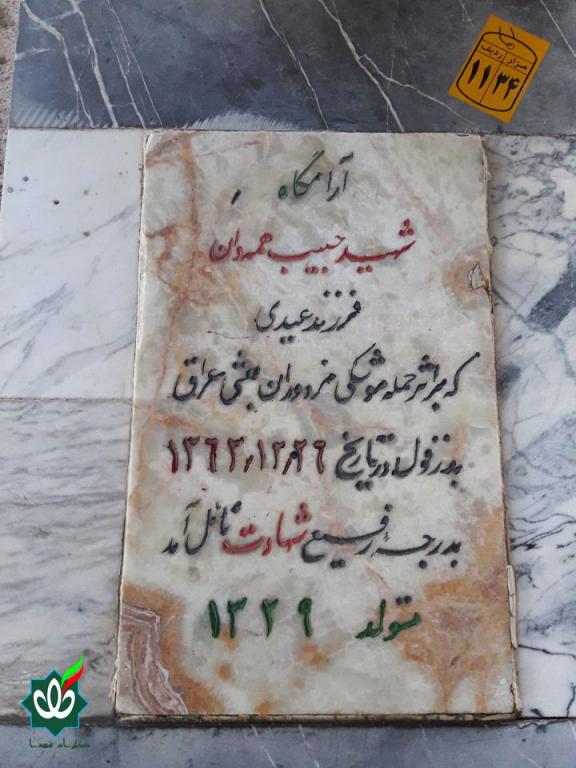 مزار ردیف
۱۱ ۳۴
آرامگاه
شهید حبیب همه دان
فرزند عیدی
که بر اثر حمله موشکی مزدوران بعثی عراق
بدزفول در تاریخ ۱۳۶۳/۱۲/۲۶
بدرجه رفیع شهادت نائل آمد
متولد ۱۳۲۹